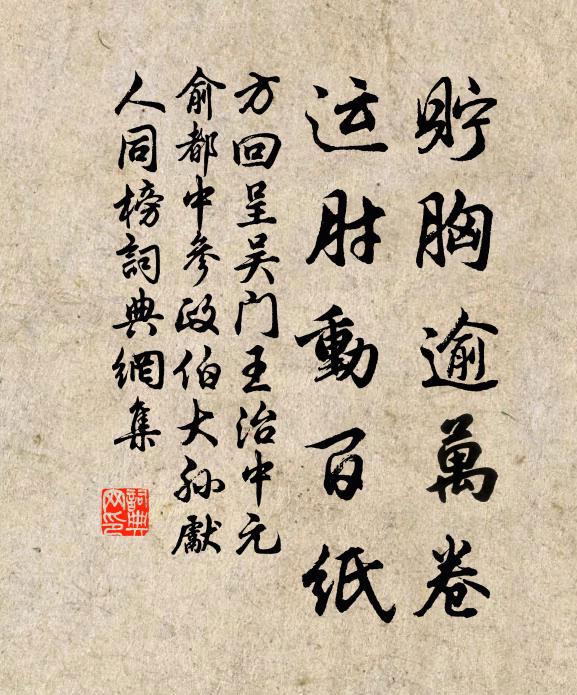 貯胸逾萬卷
运肘動百紙
方回呈吴门王治中元
俞都中參政伯大孙獻
人同榜詞典網集
詞典网印